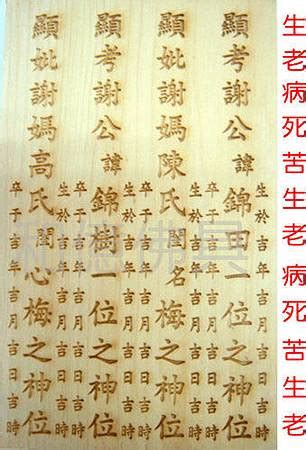 生老病死苦生老病死苦生老
顯考謝公諱錦田一位之神位
生於吉年吉月吉日吉時
卒于吉年吉月吉日吉時
顯妣謝媽陳氏閨名梅之神位
生於吉年吉月吉日吉時
卒于吉年吉月吉日吉時
顯考謝公諱錦樹一位之神位
生於吉年吉月吉日吉時
卒于吉年吉月吉日吉時
顯妣謝媽高氏閨心梅之神位
生於吉年吉月吉日吉時
卒于吉年吉月吉日吉時
佛具